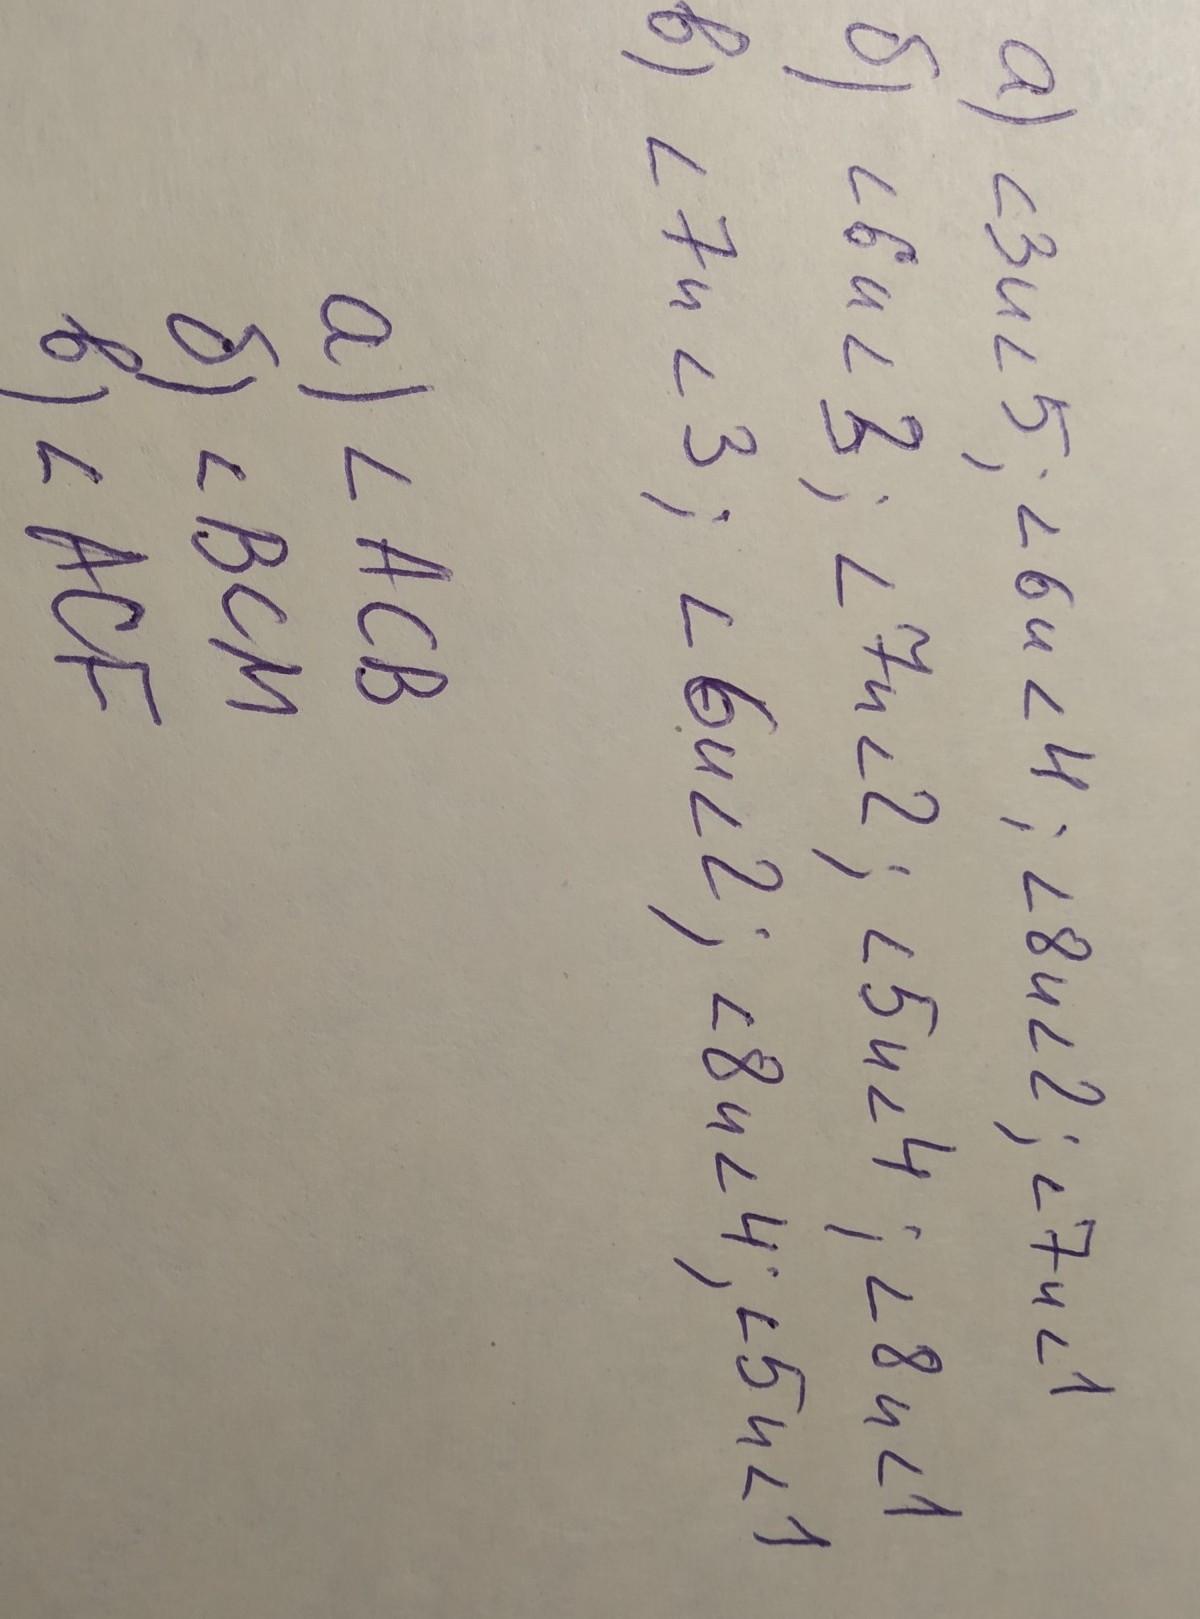 а) ∠3и∠5; ∠6и∠4; ∠8и∠2; ∠7и∠1
б) ∠6и∠3; ∠7и∠2; ∠5и∠4; ∠8и∠1
в) ∠7и∠3; ∠6и∠2; ∠8и∠4; ∠5и∠1
а) ∠ACB
б) ∠BCM
в) ∠ACF